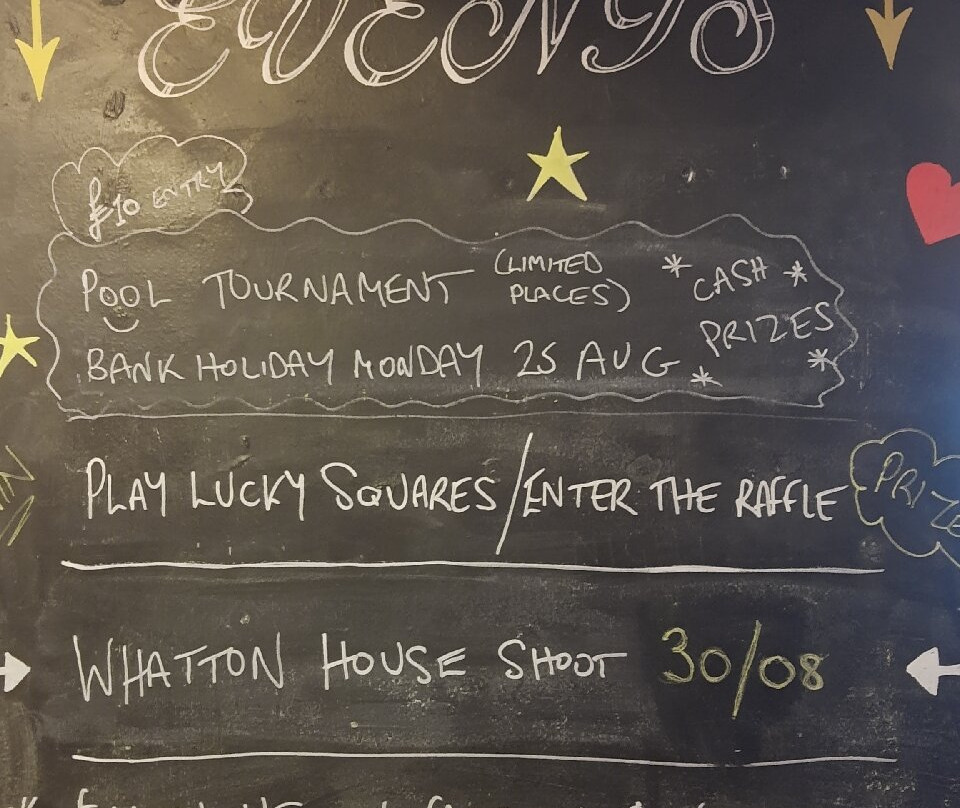 EVENTS
£10 ENTRY
POOL TOURNAMENT (LIMITED PLACES)
BANK HOLIDAY MONDAY 25 AUG
* CASH *
PRIZES
* *
PLAY LUCKY SQUARES/ENTER THE RAFFLE
WHATTON HOUSE SHOOT 30/08